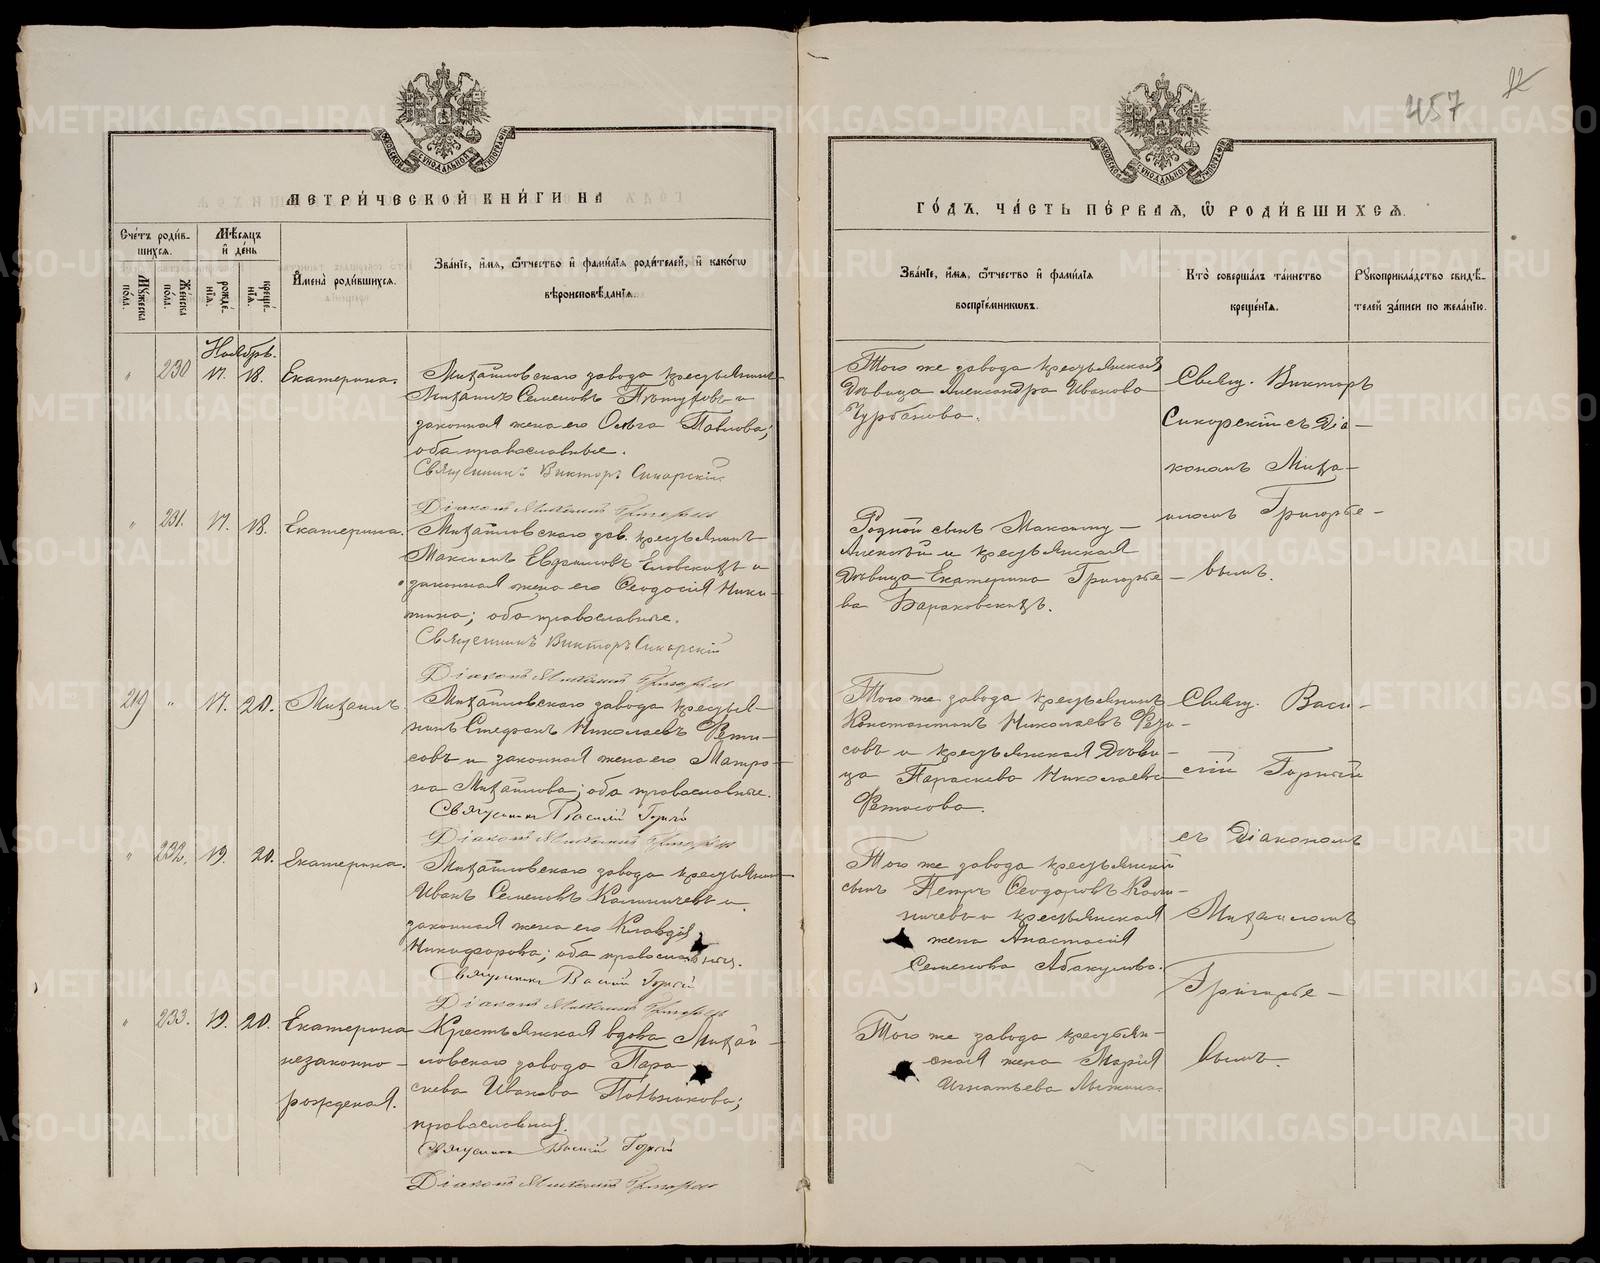 457
МЕТРИ́ЧЕСКОЙ КНИ́ГИ НА
Сче́тъ роди́в-
шихсѧ.
Мꙋ́жеска по́ла.
Же́нска по́ла.
Мѣ́сѧцъ
и҆ де́нь
рожде́-
нїѧ.
креще́-
нїѧ.
И҆мена̀ роди́вшихсѧ.
Зва́нїе, и҆́мѧ, ѻ҆́тчество и҆ фами́лїѧ роди́телей, и҆ како́гѡ
вѣроисповѣ́данїѧ.
Ноябрь.
" 230 17. 18. Екатерина.
Михайловскаго завода крестьянинъ
Михаилъ Семеновъ Пѣтуховъ и
законная жена его Ольга Павлова;
оба православные.
Священникъ Викторъ Сикорскій
Діаконъ Михаилъ Григорьевъ
" 231. 17. 18. Екатерина.
Михайловскаго зав. крестьянинъ
Максимъ Еѳраимовъ Еловскихъ и
законная жена его Ѳеодосія Ники-
тина; оба православные.
Священникъ Викторъ Сикорскій
Діаконъ Михаилъ Григорьевъ
219 " 17. 20. Михаилъ.
Михайловскаго завода крестья-
нинъ Стефанъ Николаевъ Фети-
совъ и законная жена его Матро-
на Михайлова; оба православные.
Священникъ Василій Горный
Діаконъ Михаилъ Григорьевъ
" 232. 19. 20. Екатерина.
Михайловскаго завода крестьянинъ
Иванъ Семеновъ Калиничевъ и
законная жена его Клавдія
Никифорова; оба православные.
Священникъ Василій Горный
Діаконъ Михаилъ Григорьевъ
" 233. 19. 20. Екатерина
незаконно-
рожденая.
Крестьянская вдова Михай-
ловскаго завода Пара-
скева Иванова
православная.
Священникъ Василій Горный
Діаконъ Михаилъ Григорьевъ
ГО́ДЪ, ЧА́СТЬ ПЕ́РВАѦ, Ѽ РОДИ́ВШИХСѦ.
Зва́нїе, и҆́мѧ, ѻ҆́тчество и҆ фами́лїѧ
воспрїе́мникѡвъ.
Кто̀ соверша́лъ та́инство
креще́нїѧ.
Рꙋкоприкла́дство свидѣ́-
телей за́писи по жела́нїю.
Того же завода крестьянская
дѣвица Александра Иванова
Чурбанова.
Свящ. Викторъ
Сикорскій съ діа-
кономъ Миха-
иломъ Григорье-
вымъ.
Родной сынъ Максиму
Алексѣй и крестьянская
дѣвица Екатерина Григорье-
ва Бараковскихъ.
Того же завода крестьянинъ
Константинъ Николаевъ Фети-
совъ и крестьянская дѣви-
ца Параскева Николаева
Фетисова.
Свящ. Васи-
лій Горный
съ діакономъ
Михаиломъ
Григорье-
вымъ.
Того же завода крестьянскій
сынъ Петръ Ѳеодоровъ Кали-
ничевъ и крестьянская
жена Анастасія
Семенова Абакумова.
Того же завода крестьян-
ская жена Марія
Игнатьева